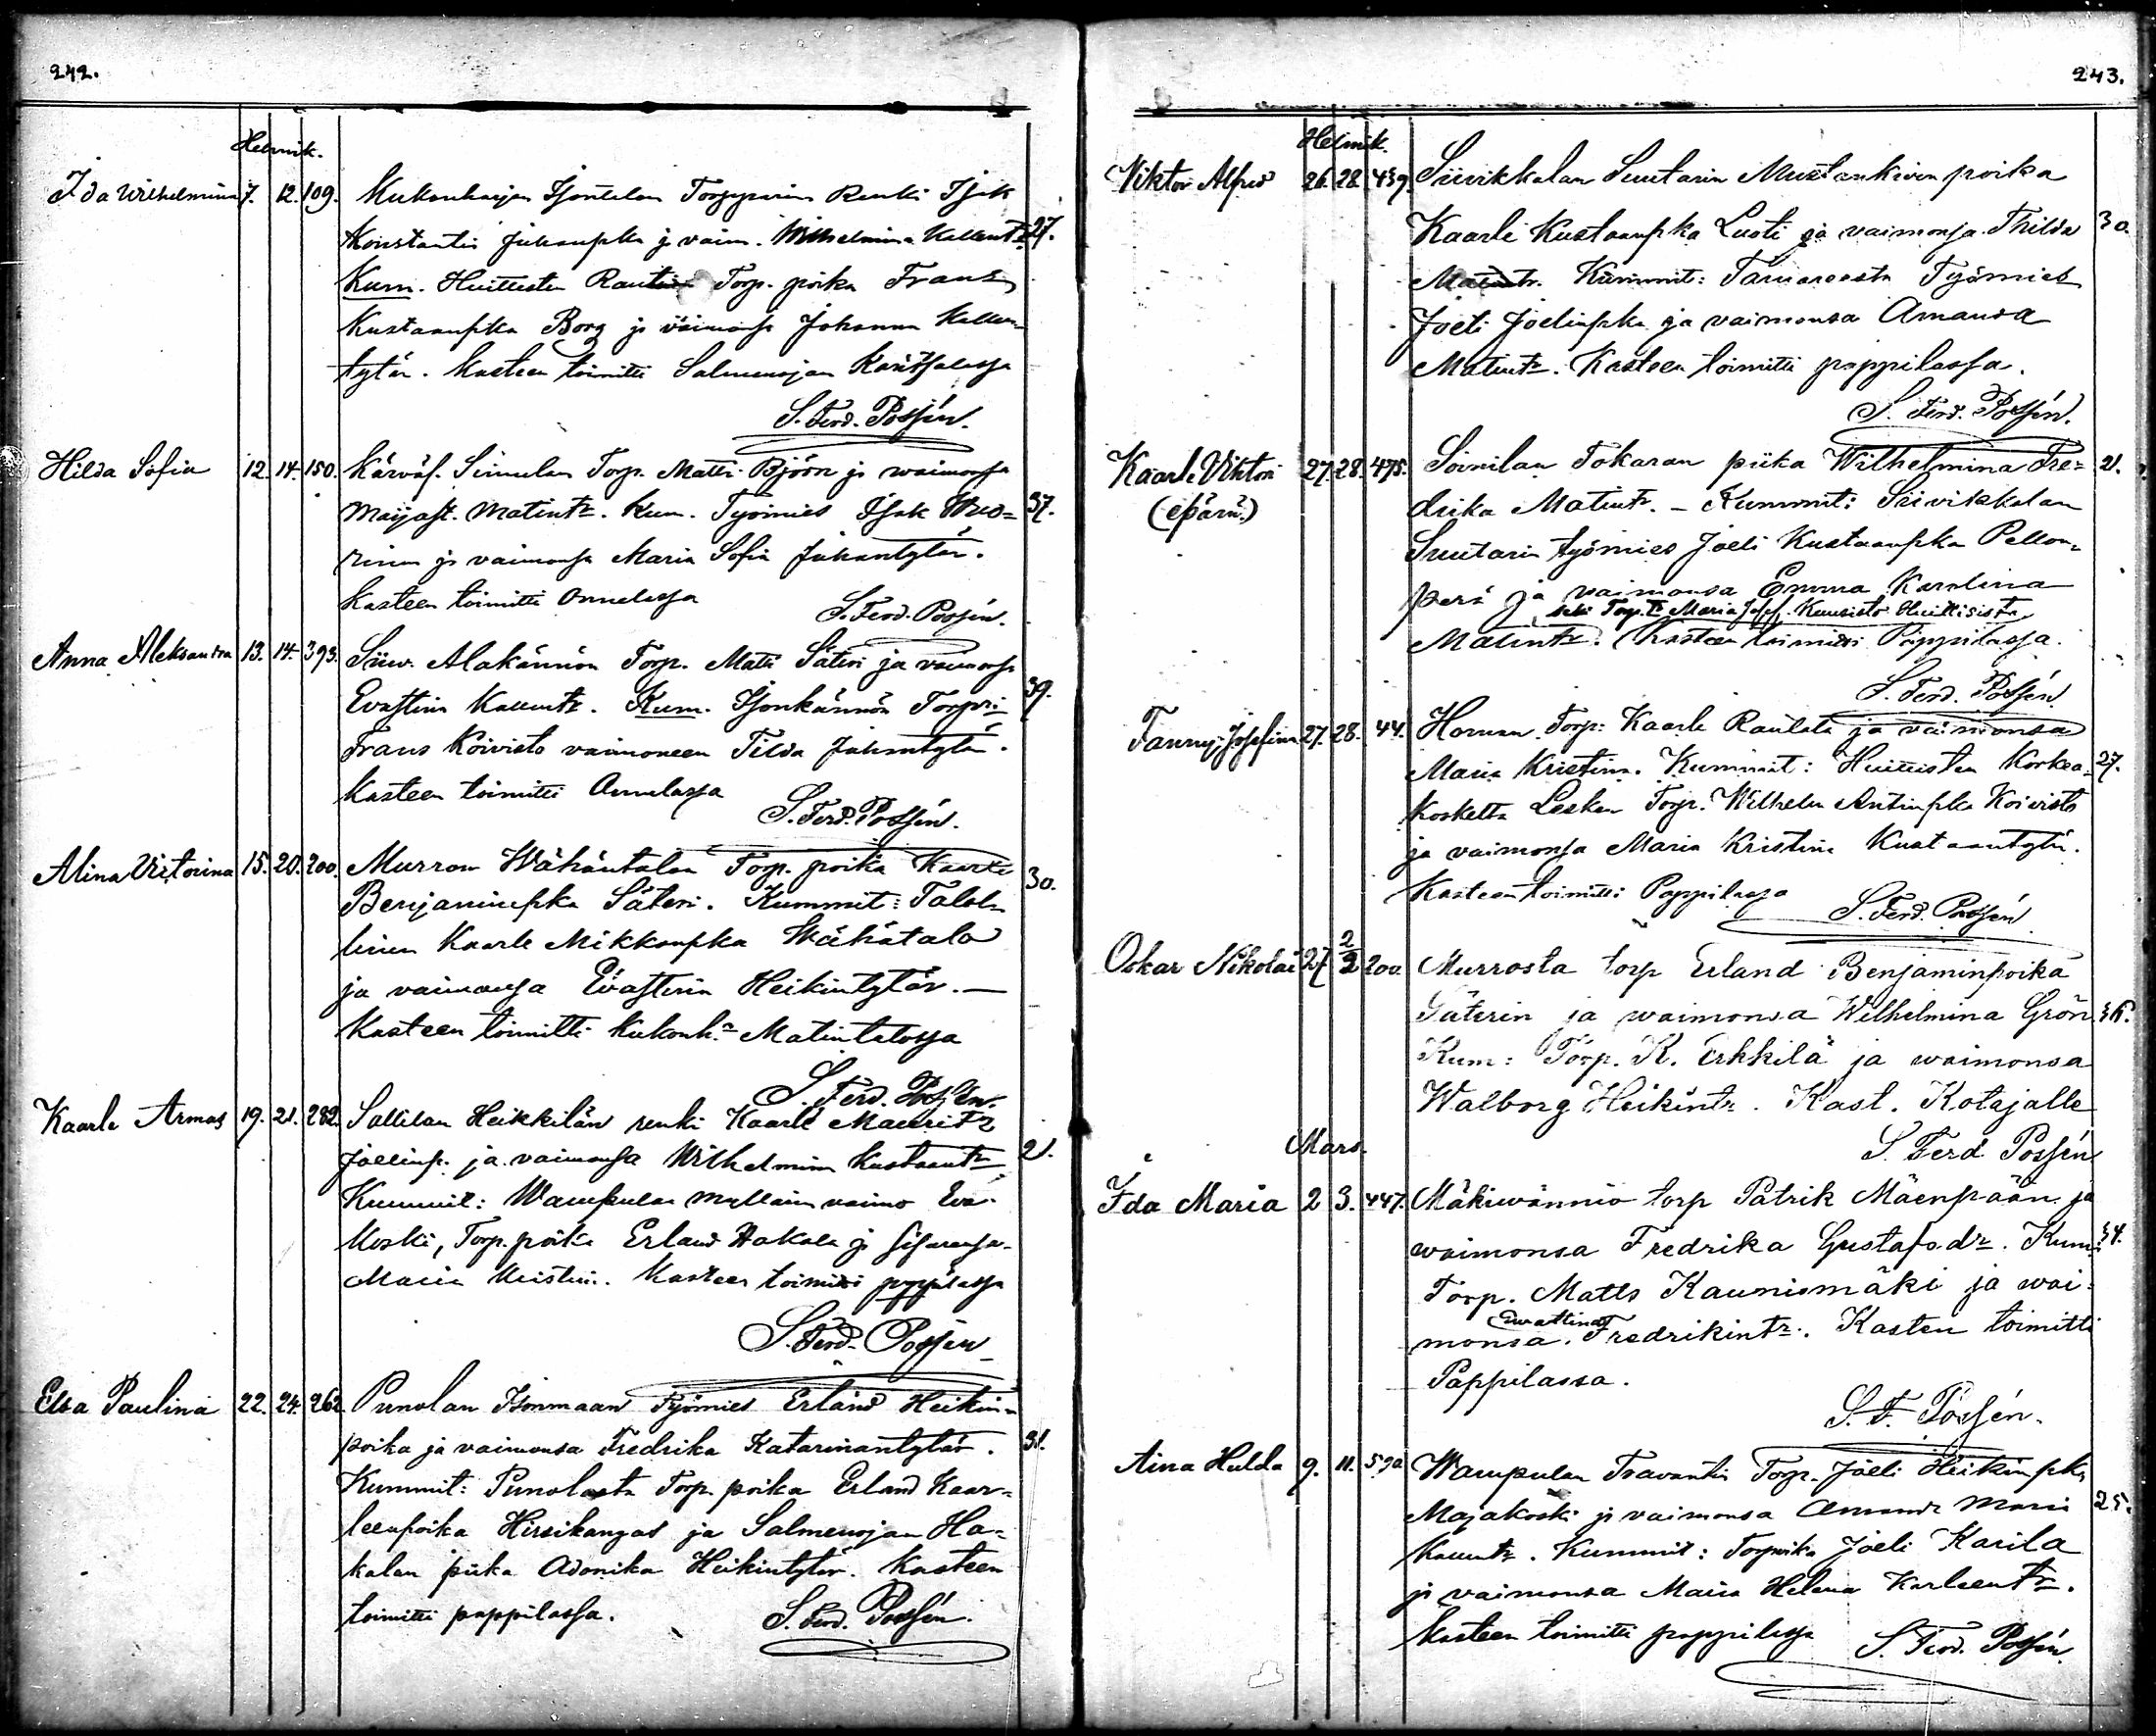 242.
Helmik.
Ida Wilhelmina 7. 12. 109. Kukonharjan Isontalon Torpparin Renki Isak
Konstantin Juhanpka ja vaim. Wilhelmina Kallentr 27.
Kum. Huittisten Rautio Torp. poika Frans
Kustaanpka Borg ja vaimonsa Johanna Kallen-
tytär. Kasteen toimitti Salmenojan Karitsalassa
S. Ferd. Possén.
Hilda Sofia 12. 14. 150. Kärväs. Simulan Torp. Matti Björn ja waimonsa
Maijast. Matintr. Kum. Työmies Isak 37.
ja vaimonsa Maria Sofia Juhantytär.
Kasteen toimitti Onnelassa
S. Ferd. Possén.
Anna Aleksandra 13. 14. 393. Siiw. Alakännön Torp. Matti Säteri ja vaimonsa
Evastiina Kallentr. Kum. Isonkännön Torpari 39.
Frans Koivisto vaimoneen Tilda Juhantytär.
Kasteen toimitti Onnelassa
S. Ferd. Possén.
Alina Victorina 15. 20. 200. Murron Wähäntalon Torp. poika Kaarle
Benjaminpka Säteri. Kummit: Talol- 30.
linen Kaarle Mikkonpka Wähätalo
ja vaimonsa Evastiina Heikintytär. —
Kasteen toimitti Kukonh:n Matintalossa
S. Ferd. Possén.
Kaarle Armas 19. 21. 282. Sallilan Heikkilän renki Kaarle Mauritz
Joelinp. ja vaimonsa Wilhelmina Kustaantr 21.
Kummit: Wampulan Myllärin vaimo Eva
Koski, Torp. poika Erland Hakala ja sisarensa
Maria Kristin. Kasteen toimitti pappilassa
S. Ferd. Possén
Elsa Paulina 22. 24. 262. Punolan Isonmaan Työmies Erland Heikin-
poika ja vaimonsa Fredrika Katarinantytär. 31.
Kummit: Punolasta Torp. poika Erland Kaar-
leenpoika Hirsikangas ja Salmenojan Ha-
kalan piika Adonika Heikintytär. Kasteen
toimitti pappilassa. S. Ferd. Possén.
243.
Helmik.
Viktor Alfred 26. 28. 439. Siivikkalan Suutarin Mustankiven poika
Kaarle Kustaanpka Luoti ja vaimonsa Thilda 30.
Matintr. Kummit: Työmies
Joeli Joelinpka ja vaimonsa Amanda
Matintr. Kasteen toimitti pappilassa.
S. Ferd. Possén.
Kaarle Viktori 27. 28. 475. Soinilan Tokaran piika Wilhelmina Fre- 21.
(epärä) drika Matintr. – Kummit: Siivikkalan
Suutarin työmies Joeli Kustaanpka Pellon-
perä ja vaimonsa Emma Karolina
sekä Torp. Tr Maria Josef. Kuusisto Huittisista
Matintr. Kasteen toimitti Pappilassa.
S. Ferd. Possén
Fanny Josefina 27. 28. 44. Hornan Torp: Kaarle Raulala ja vaimonsa
Maria Kristina. Kummit: Huittisten Korkea- 27.
koskelta Lesken Torp. Wilhelm Antinpka Koivisto
ja vaimonsa Maria Kristina Kustaantytär.
Kasteen toimitti Pappilassa
S. Ferd. Possén
Oskar Nikolai 27 2/2 200 Murrosta torp Erland Benjaminpoika
Säterin ja waimonsa Wilhelmina Grön 36.
Kum: Torp. K. Erkkilä ja waimonsa
Walborg Heikintr. Kast. Kotajalle
S. Ferd Possén
Mars.
Ida Maria 2 3. 447. Mäkiwännio torp Patrik Mäenpään ja
waimonsa Fredrika Gustafsdr. Kum: 34.
Torp. Matts Kaunismäki ja wai-
Ewastina
monsa. Fredrikintr. Kasten toimitti
Pappilassa.
S. F. Possén.
Aina Hulda 9. 11. 590 Wampulan Travantin Torp. Joeli Heikinpka
Majakoski ja vaimonsa Amanda Maria 25.
Kallentr. Kummit: Torpoika Joeli Karila
ja vaimonsa Maria Helena Karleentr.
Kasteen toimitti pappilassa S. Ferd. Possén